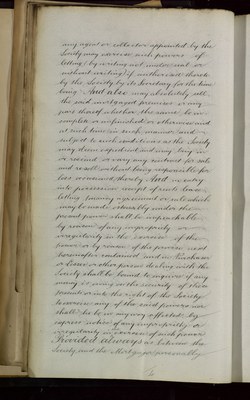 any agent or collector appointed by the
Society may exercise such powers of
letting) by writing not under seal or
without writing if authorized thereto
by the Society by its Secretary for the time
being And also may absolutely sell
the said mortgaged premises or any
part thereof whether the same be in
complete or unfinished or otherwise and
at such time in such manner and
subject to such conditions as the Society
may deem expedient and may buy in
or rescind or vary any contract for sale
and resell without being responsible for
loss occasioned thereby And no entry
into possession receipt of rents lease
letting tenancy agreement or sale which
may be made under the
present power shall be impeachable
by reason of any impropriety or
irregularity in the exercise of the
power or by reason of the powers next
hereinafter contained and no Purchaser
or Lessee or other person dealing with the
Society shall be bound to inquire if any
money is owing on the security of these
presents or into the right of the Society
to exercise any of the said powers nor
shall he be in anyway affected by
express notice of any impropriety or
irregularity in exercise of such powers
Provided always as between the
Society and the Mortgagor personally